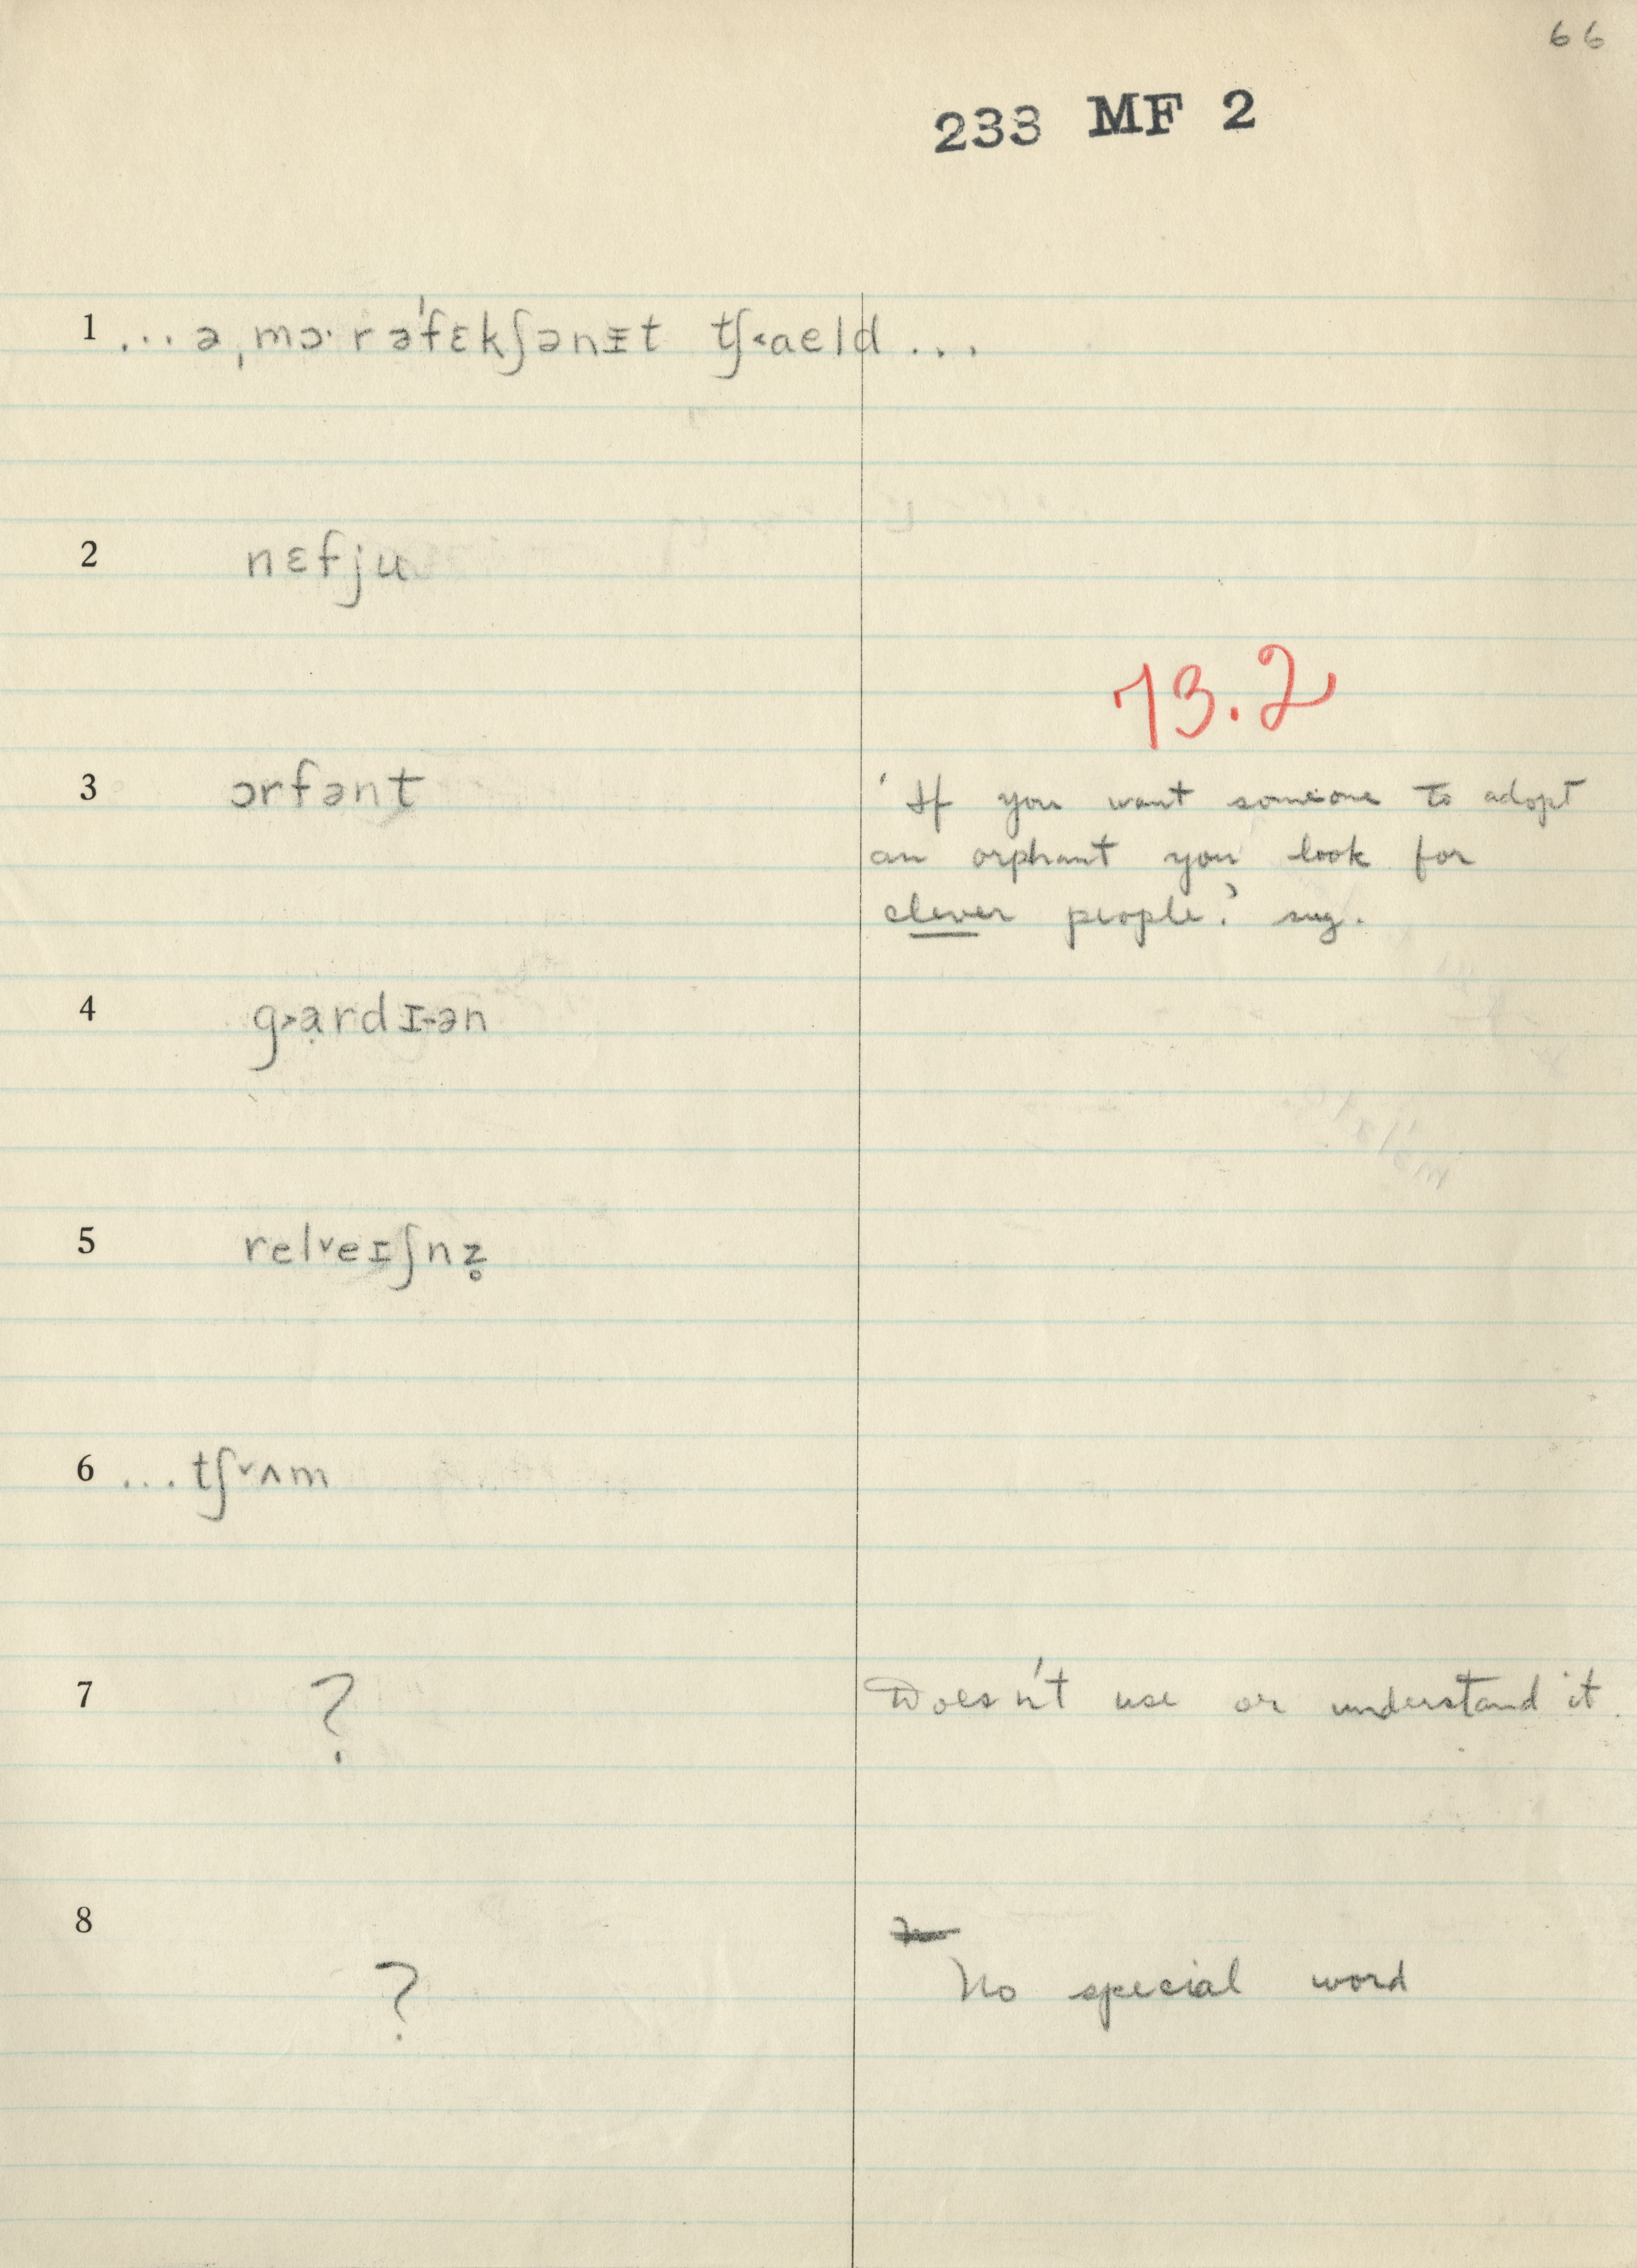 66
233 MF 2
1 ... əˌmɔ·r əˈfɛkʃənɪt tʃ˂aeld ...
2 nɛfju
73.2
3 ɔrfənt
'If you want someone to adopt
an orphant you look for
clever people.' sug.
4 g˃ạrdɪ-ən
5 relˇeɪʃnz̥
6 ... tʃˇʌm
7 ? Doesn't use or understand it.
8
? No special word